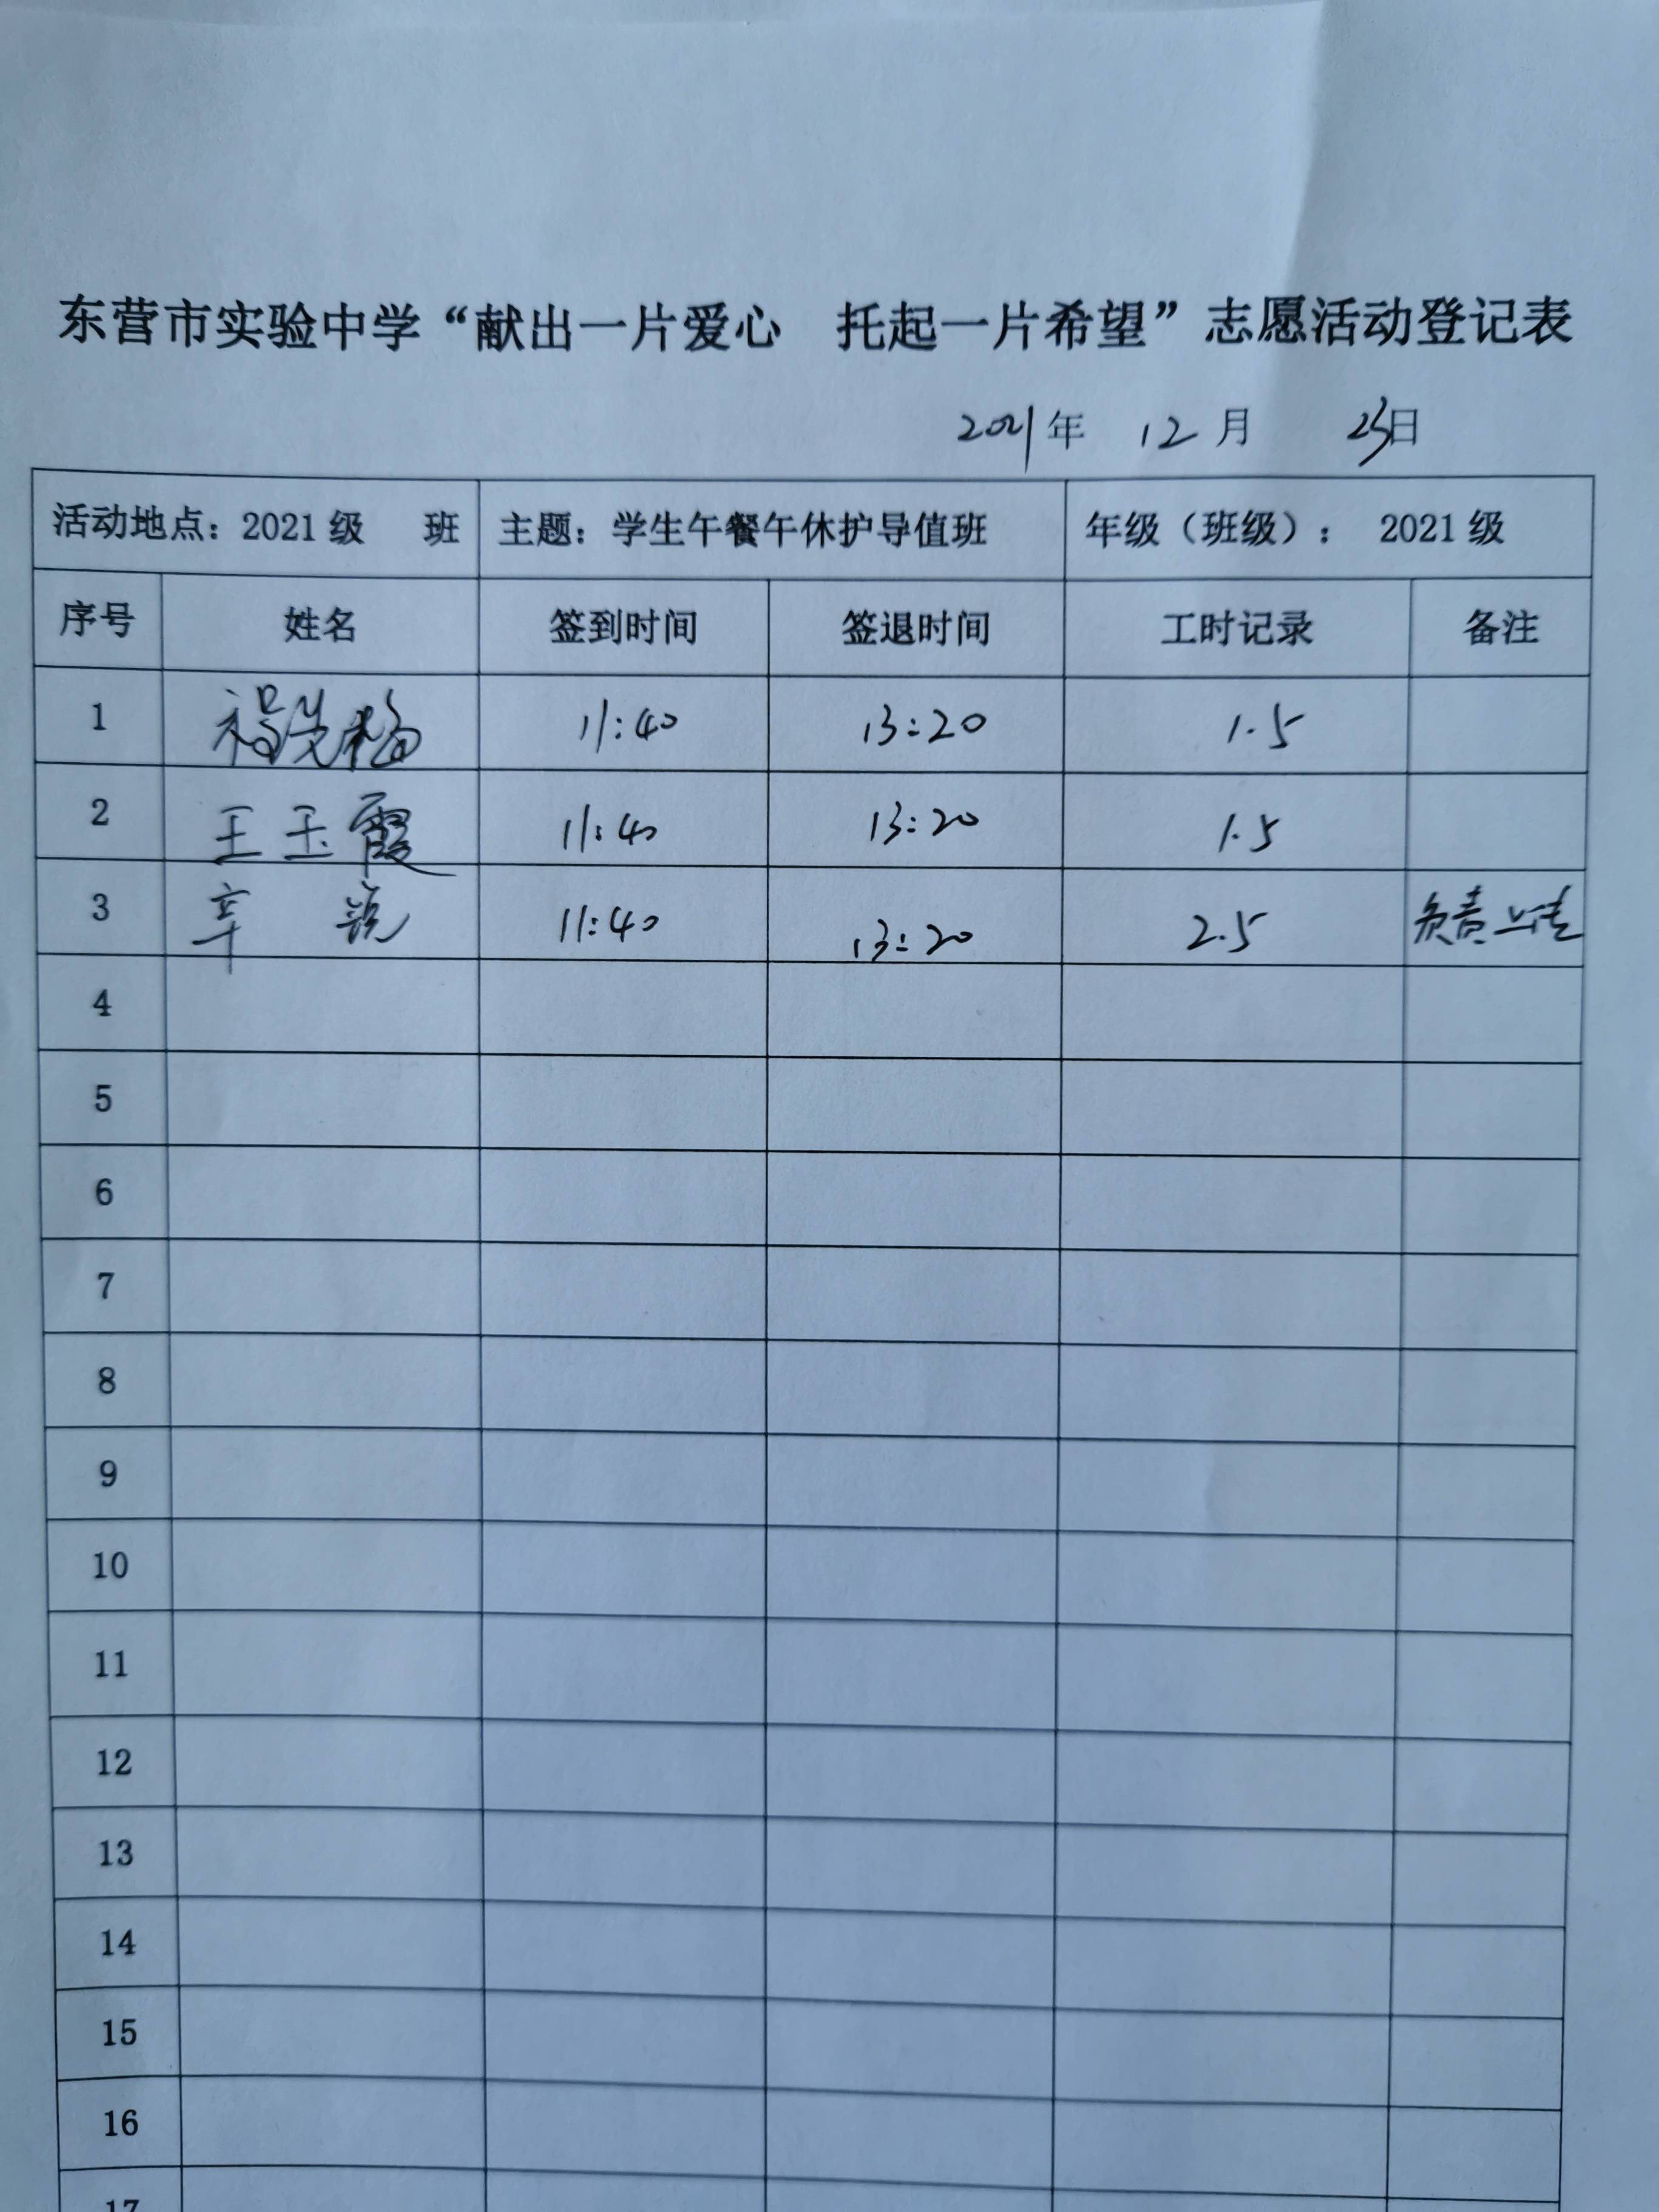 东营市实验中学“献出一片爱心 托起一片希望”志愿活动登记表
2021年 12月 23日
活动地点：2021级 班 主题：学生午餐午休护导值班 年级（班级）： 2021级
序号 姓名 签到时间 签退时间 工时记录 备注
1 11:40 13:20 1.5
2 王玉霞 11:40 13:20 1.5
3 辛锐 11:40 13:20 2.5 负责上传
4
5
6
7
8
9
10
11
12
13
14
15
16
17